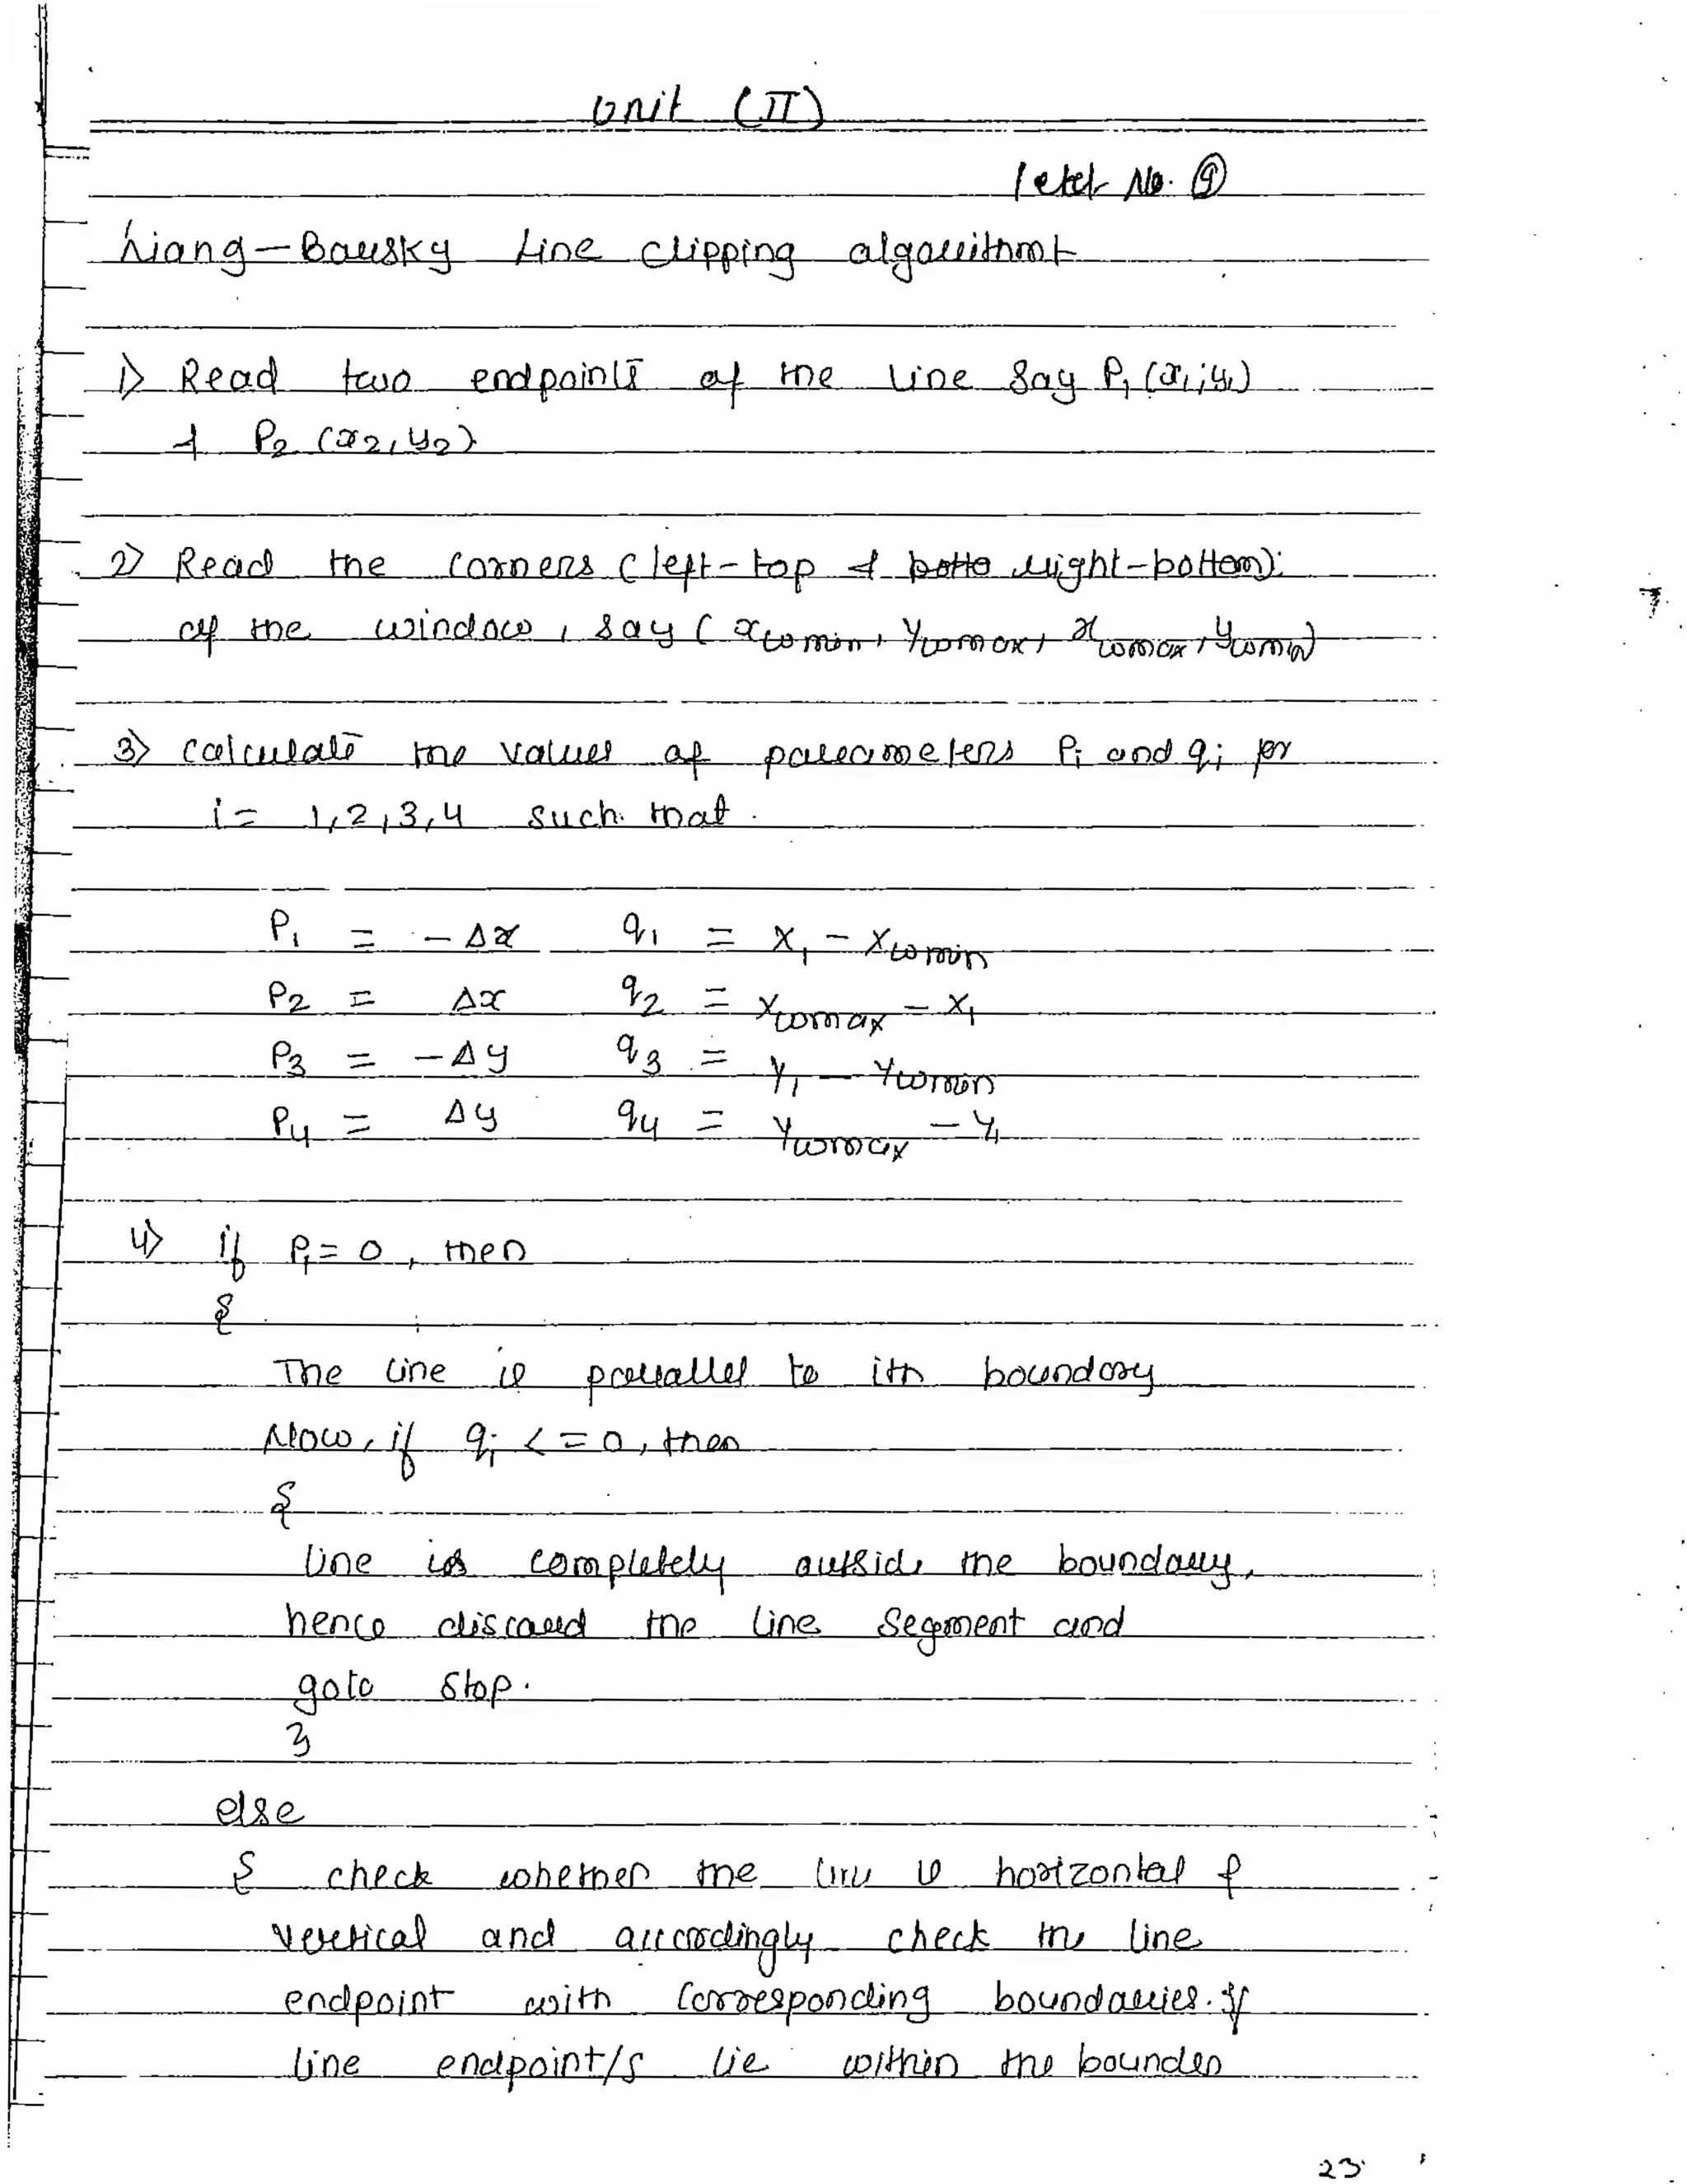 Unit (II)
No. 9
Liang-Barsky Line clipping algorithm
1) Read two endpoints of the line say P1 (x1, y1)
& P2 (x2, y2)
2) Read the corners (left-top & right-bottom)
of the window, say (xwmin, ywmax, xwmax, ywmin)
3) calculate the values of parameters Pi and qi for
i = 1,2,3,4 such that
P1 = -Δx q1 = x1 - xwmin
P2 = Δx q2 = xwmax - x1
P3 = -Δy q3 = y1 - ywmin
P4 = Δy q4 = ywmax - y1
4) if Pi = 0, then
{
The line is parallel to ith boundary
Now, if qi <= 0, then
{
line is completely outside the boundary,
hence discard the line segment and
goto stop.
}
else
{ check whether the line is horizontal &
vertical and accordingly check the line
endpoint with corresponding boundaries. If
line endpoint/s lie within the bounder
23